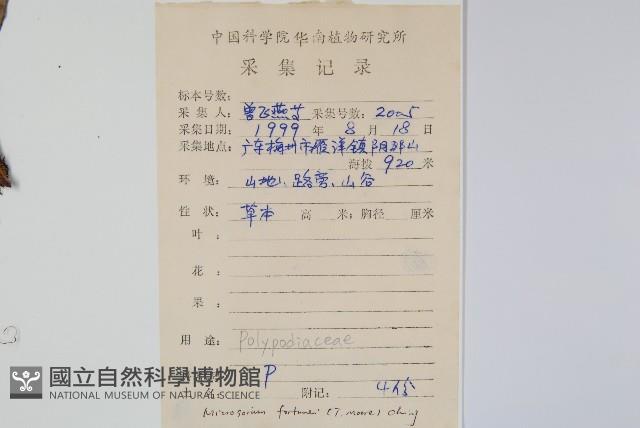 中国科学院华南植物研究所
采集记录
标本号数:
采集人: 曾飞燕 采集号数: 2005
采集日期: 1999 年 8 月 18 日
采集地点: 广东梅州市雁洋镇阴那山
海拨 920 米
环境: 山地、路旁、山谷
性状: 草本 高 米; 胸径 厘米
叶:
花:
果:
用途: Polypodiaceae
P
土名: 附记: 4份
Microsorium fortunei (T. Moore) Ching
國立自然科學博物館
NATIONAL MUSEUM OF NATURAL SCIENCE